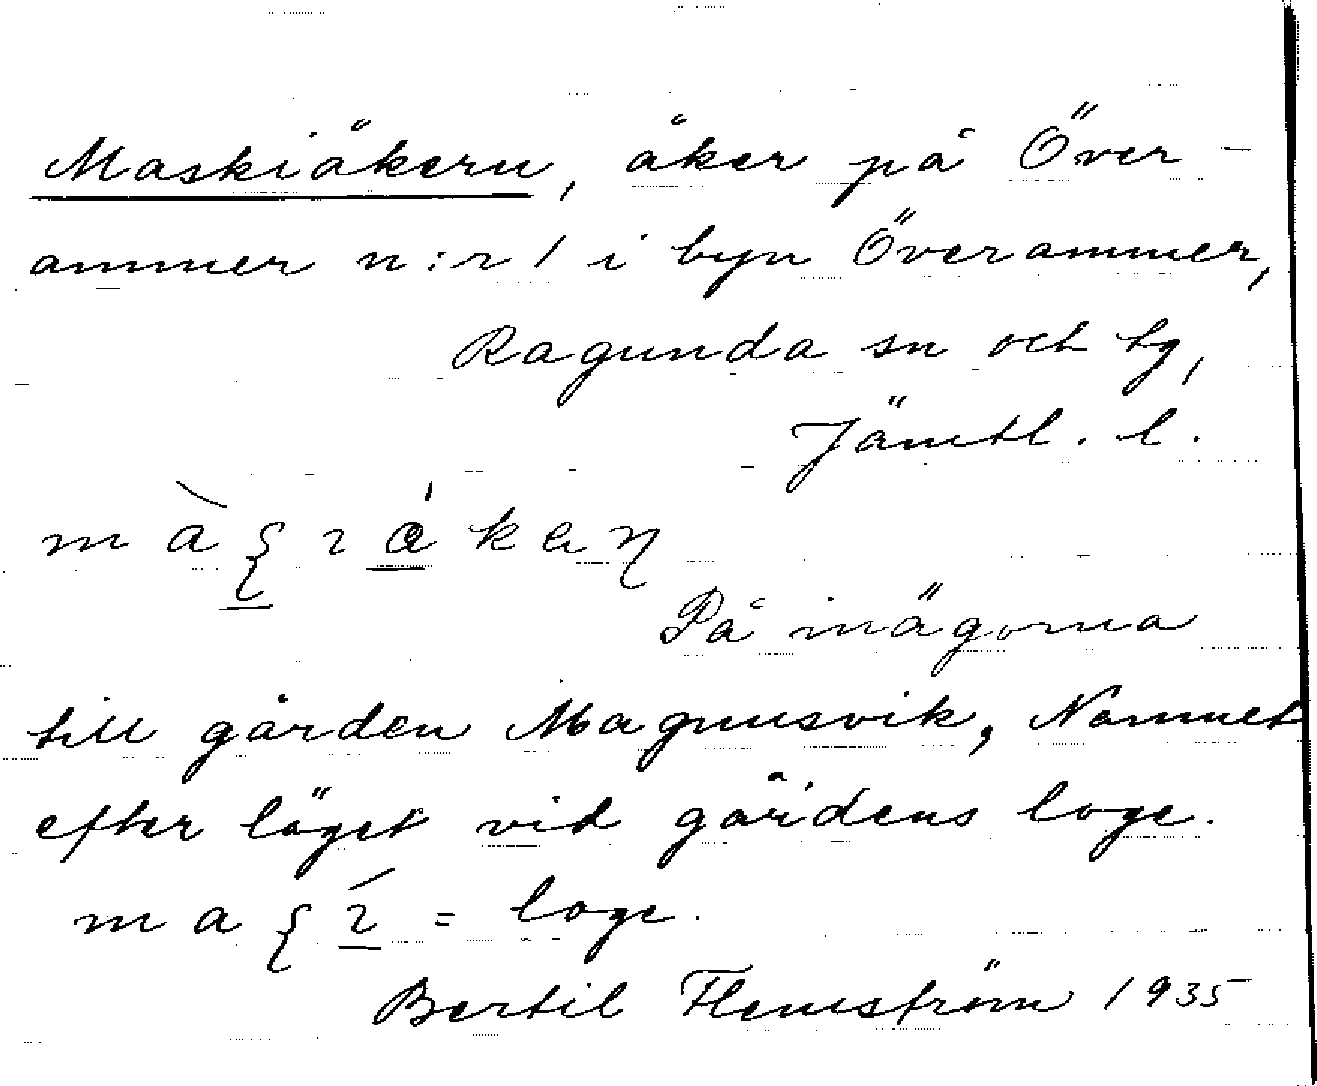 Maskiåkern, åker på Över-
ammer n:r 1 i byn Överammer,
Ragunda sn och tg,
Jämtl. l.
På inägorna
till gården Magnusvik, Namnet
efter läget vid gårdens loge.
= loge.
Bertil Flemström 1935